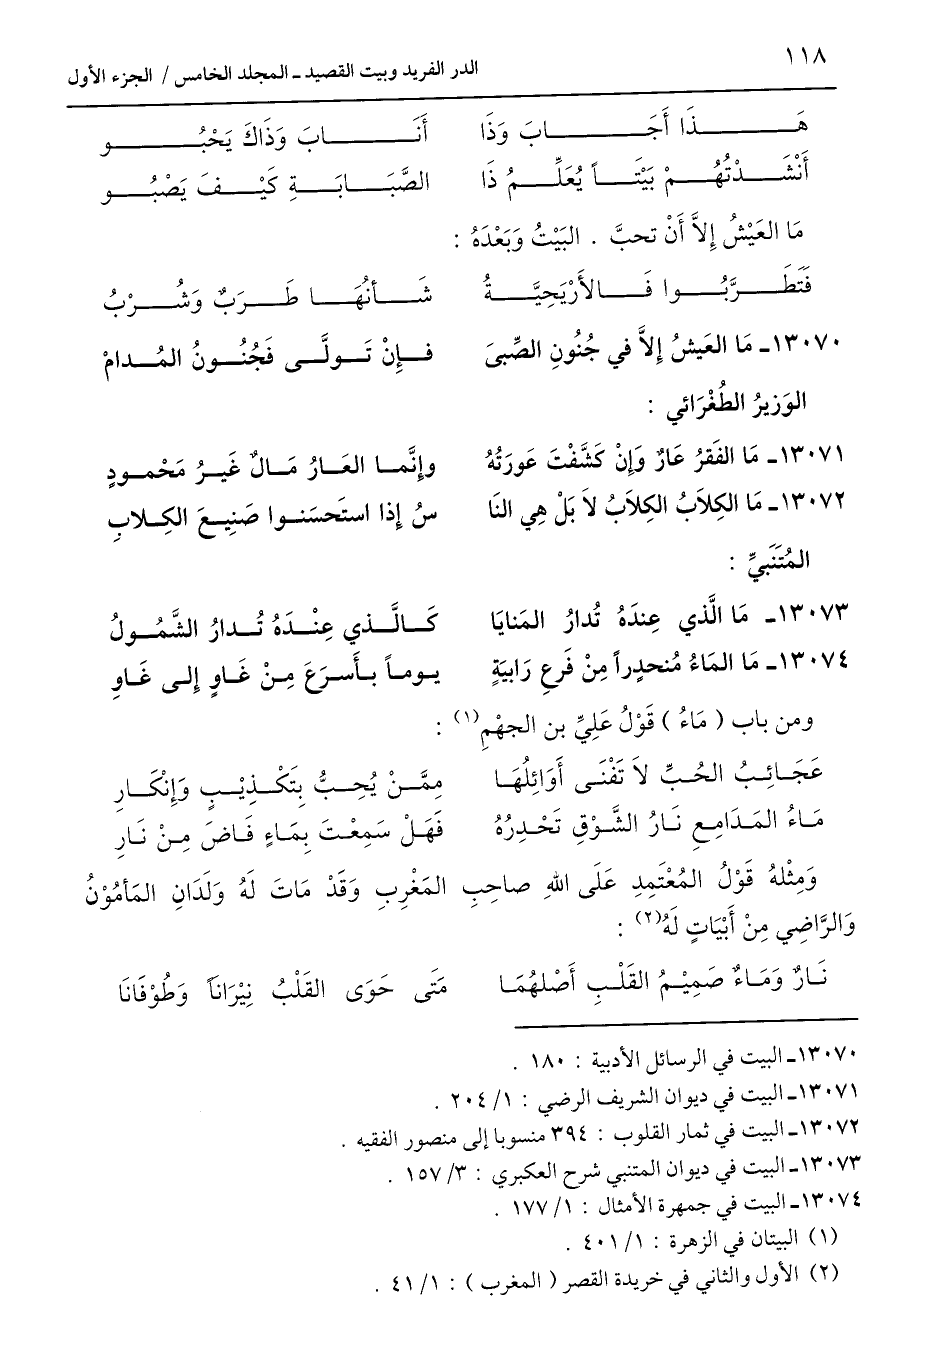 ١١٨
الدر الفريد وبيت القصيد ـ المجلد الخامس / الجزء الأول
هَـــــذَا أَجَـــــابَ وَذَا أَنَـــــابَ وَذَاكَ يَحْبُـــــو
أَنْشَـــدْتُهُـــمْ بَيْتَـــاً يُعَلِّـــمُ ذَا الصَّبَـــابَـــةِ كَيْـــفَ يَصْبُـــو
مَا العَيْشُ إِلاَّ أَنْ تحبَّ . البَيْتُ وَبَعْدَهُ :
فَتَطَـــرَّبُـــوا فَـــالأَرْيَحِيَّـــةُ شَـــأنُهَـــا طَـــرَبٌ وَشُـــرْبُ
١٣٠٧٠ـ مَا العَيشُ إِلاَّ في جُنُونِ الصِّبىَ فـإِنْ تَـولَّـى فَجُنُـونُ المُـدامْ
الوَزيرُ الطُغْرَائي :
١٣٠٧١ـ مَا الفَقرُ عَارٌ وَإِنْ كَشَّفْتَ عَورَتُهُ وإِنَّمـا العَـارُ مَـالٌ غَيـرُ مَحْمـودٍ
١٣٠٧٢ـ مَا الكِلاَبُ الكِلاَبُ لاَ بَلْ هِي النَا سُ إِذا استَحسَنـوا صَنِيـعَ الكِـلابِ
المُتَنَبيِّ :
١٣٠٧٣ـ مَا الَّذي عِندَهُ تُدارُ المَنايَا كَـالَّـذي عِنْـدَهُ تُـدارُ الشَّمُـولُ
١٣٠٧٤ـ مَا المَاءُ مُنحدِراً مِنْ فَرعِ رَابيَةٍ يـومـاً بـأَسـرَعَ مِـنْ غَـاوٍ إلـى غَـاوِ
ومن باب ( مَاءُ ) قَوْلُ عَلِيِّ بن الجهْمِ(١) :
عَجَـائِـبُ الحُـبِّ لاَ تَفْنَـى أَوَائِلُهَـا مِمَّـنْ يُحِـبُّ بِتَكْـذِيْـبٍ وَإِنْكَـارِ
مَـاءُ المَـدَامِـعِ نَـارُ الشَّـوْقِ تَحْـدِرُهُ فَهَـلْ سَمِعْـتَ بِمَـاءٍ فَـاضَ مِـنْ نَـارِ
وَمِثْلهُ قَوْلُ المُعْتَمِدِ عَلَى اللهِ صاحِبِ المَغْرِبِ وَقَدْ مَاتَ لَهُ وَلَدَانِ المَأمُوْنُ
وَالرَّاضِي مِنْ أَبْيَاتٍ لَهُ(٢) :
نَـارٌ وَمَـاءٌ صَمِيْـمُ القَلْـبِ أَصْلُهُمَـا مَتَى حَوَى القَلْبُ نِيْرَاناً وَطُوْفَانَا
١٣٠٧٠ـ البيت في الرسائل الأدبية : ١٨٠ .
١٣٠٧١ـ البيت في ديوان الشريف الرضي : ١/ ٢٠٤ .
١٣٠٧٢ـ البيت في ثمار القلوب : ٣٩٤ منسوبا إلى منصور الفقيه .
١٣٠٧٣ـ البيت في ديوان المتنبي شرح العكبري : ٣/ ١٥٧ .
١٣٠٧٤ـ البيت في جمهرة الأمثال : ١/ ١٧٧ .
(١) البيتان في الزهرة : ١/ ٤٠١ .
(٢) الأول والثاني في خريدة القصر ( المغرب ) : ١/ ٤١ .